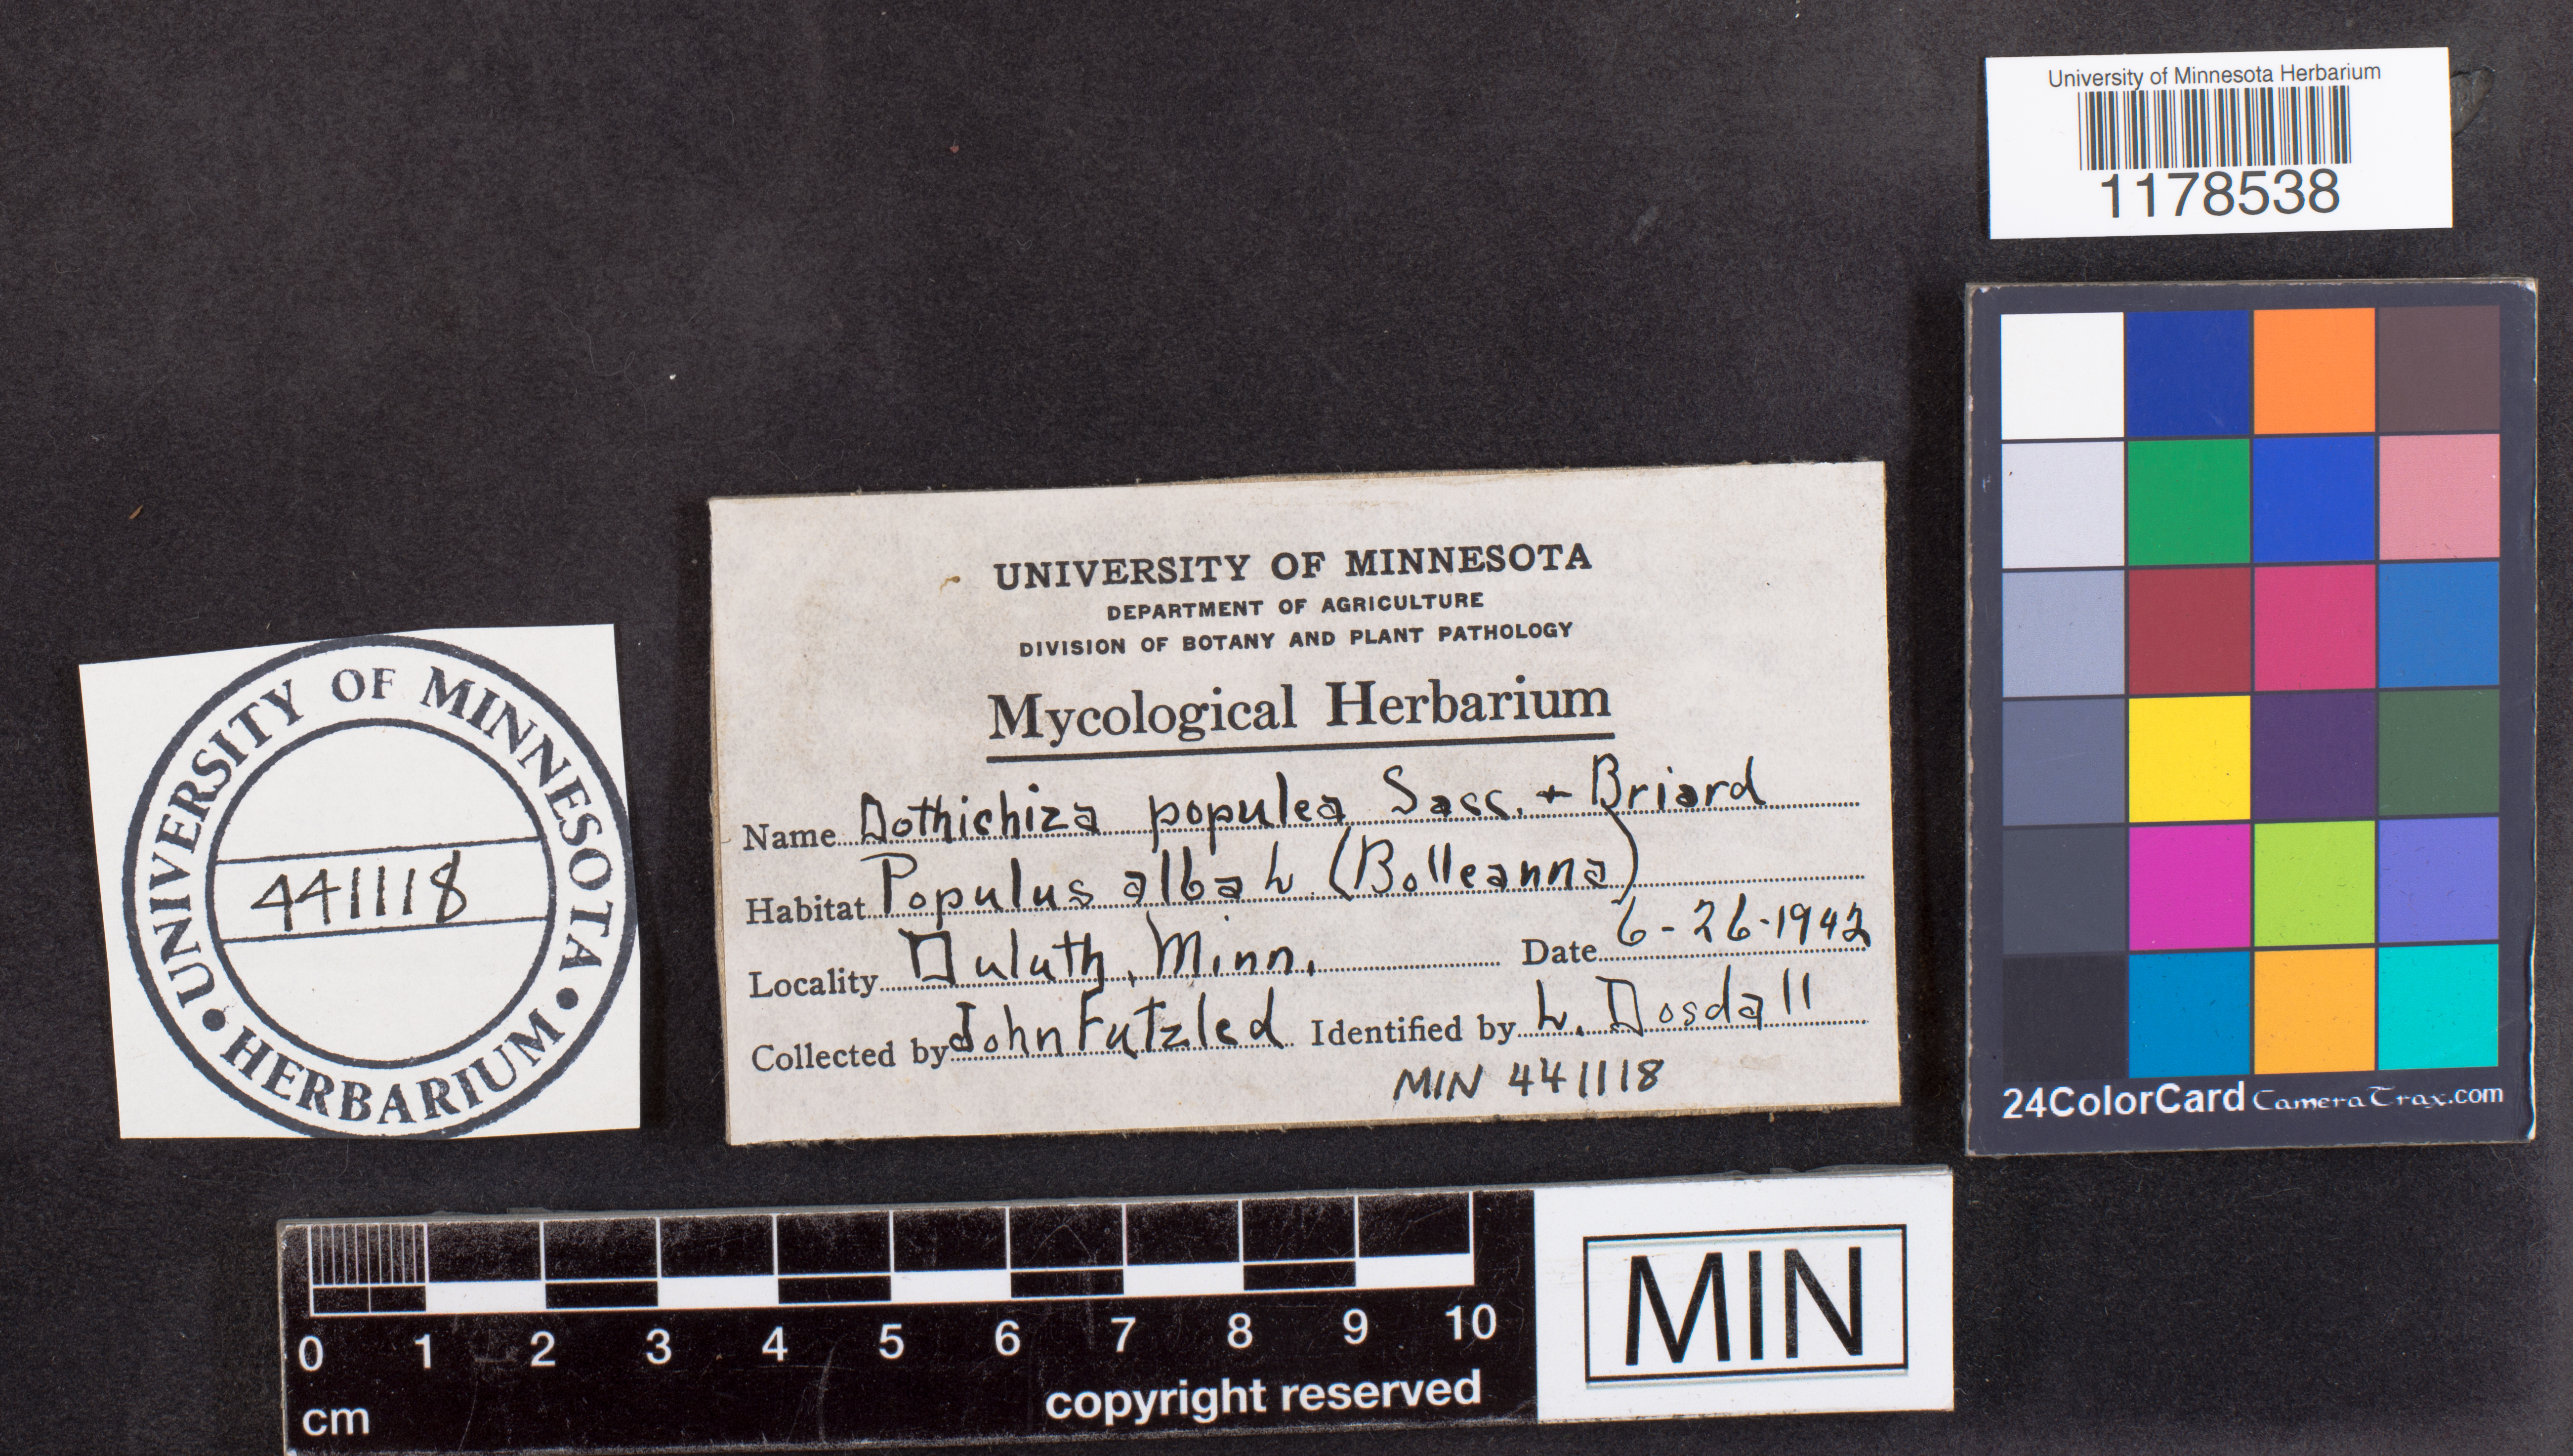 University of Minnesota Herbarium
1178538
UNIVERSITY OF MINNESOTA
DEPARTMENT OF AGRICULTURE
DIVISION OF BOTANY AND PLANT PATHOLOGY
Mycological Herbarium
Name Dothichiza populea Sacc. + Briard
Habitat Populus alba L (Bolleanna)
Locality Duluth, Minn. Date 6-26-1942
Collected by John Futzled Identified by L. Dosdall
MIN 441118
UNIVERSITY OF MINNESOTA
441118
HERBARIUM
24ColorCard CameraTrax.com
0 1 2 3 4 5 6 7 8 9 10
cm
copyright reserved
MIN